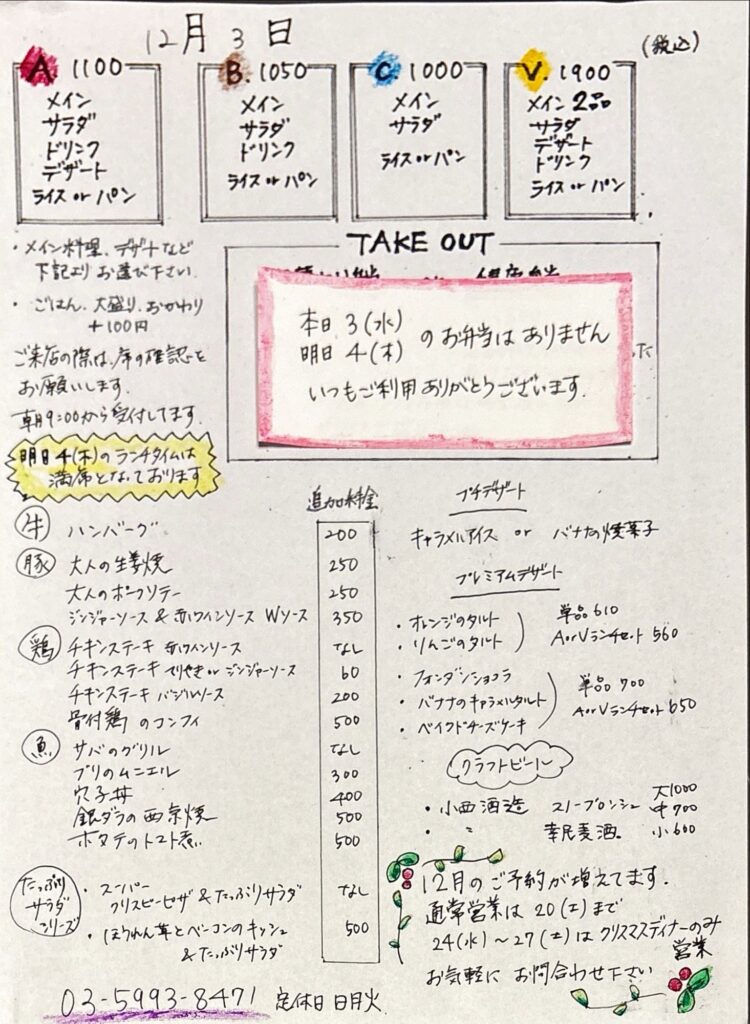 12月3日
(税込)
A. 1100
メイン
サラダ
ドリンク
デザート
ライス or パン
B. 1050
メイン
サラダ
ドリンク
ライス or パン
C. 1000
メイン
サラダ
ライス or パン
V. 1900
メイン 2品
サラダ
デザート
ドリンク
ライス or パン
・メイン料理、デザートなど
下記よりお選び下さい
・ごはん、大盛り、おかわり
+100円
ご来店の際は、席の確認を
お願いします。
朝9:00から受付してます。
明日4(木)のランチタイムは
満席となっております
TAKE OUT
本日 3(水)
明日 4(木)
のお弁当はありません
いつもご利用ありがとうございます。
追加料金
牛 ハンバーグ 200
豚 大人の生姜焼 250
大人のポークソテー 250
ジンジャーソース & 赤ワインソース Wソース 350
鶏 チキンステーキ 赤ワインソース なし
チキンステーキ てりやき or ジンジャーソース 60
チキンステーキ バジルソース 200
骨付鶏のコンフィ 500
魚 サバのグリル なし
ブリのムニエル 300
穴子丼 400
銀ダラの西京焼 500
ホタテのトマト煮 500
たっぷり
サラダ
シリーズ
・スーパー
クリスピーピザ & たっぷりサラダ なし
・ほうれん草とベーコンのキッシュ 500
& たっぷりサラダ
プチデザート
キャラメルアイス or バナナの焼菓子
プレミアムデザート
・オレンジのタルト
・りんごのタルト
単品 610
A or V ランチセット 560
・フォンダンショコラ
・バナナのキャラメルタルト
・ベイクドチーズケーキ
単品 700
A or V ランチセット 650
クラフトビール
・小西酒造 スノーブロンシュ
・〃 幸民麦酒
大1000
中700
小600
12月のご予約が増えてます。
通常営業は 20(土)まで
24(水)〜27(土)は クリスマスディナーのみ
営業
お気軽に お問合わせ下さい
03-5993-8471 定休日 日月火